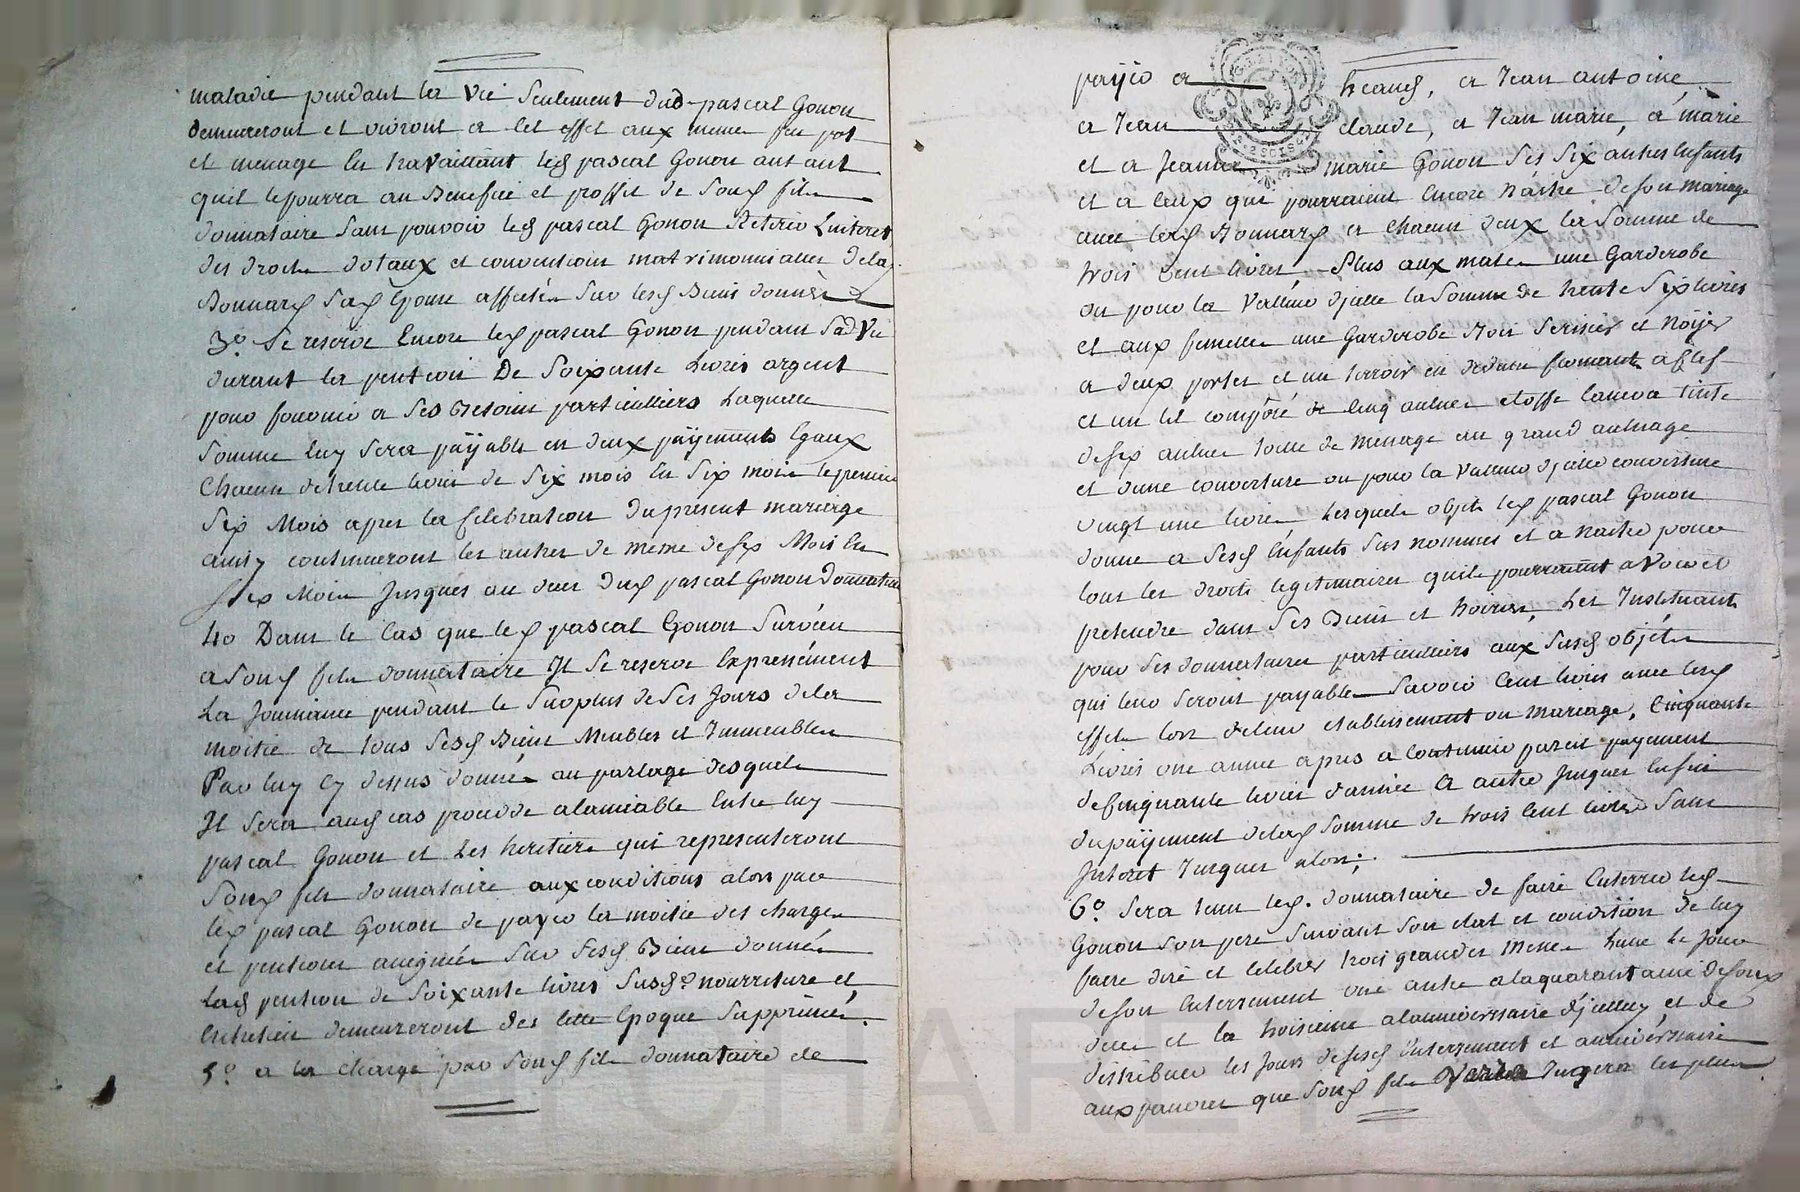 maladie pendant la vie seulement dud pascal Gonon
demeureront et vivront a cet effet aux meme feu pot
et menage en travaillant led pascal Gonon autant
quil le pourra au Benefice et proffit de soud fils
donnataire sans pouvoir led pascal Gonon Retirer Linteret
des droits dotaux et conventions matrimonialles delad
Bonnard sad Epouse affectés sur lesd Biens donnés
3.° Se reserve Encore led pascal Gonon pendant sad Vie
durant la pention De Soixante Livres argent
pour fournir a ses Besoins particulliers Laquelle
somme luy sera payable en deux payements Egaux
Chacun de trente livres de six mois En six mois le premier
six Mois apres la Celebration du present mariage
ainsy continueront les autres de meme de six Mois En
six Mois Jusques au deces dud pascal Gonon Donnateur
4o Dans le Cas que led pascal Gonon survecu
a soud fils donnataire Il se reserve Expressément
La Jouissance pendant le surplus de ses Jours dela
moitié de tous sesd Biens Meubles et Immeubles
Par luy cy dessus donnés au partage desquels
Il sera aud cas procedé alamiable Entre luy
pascal Gonon et Les heritiers qui representeront
soud fils donnataire aux conditions alors par
led pascal Gonon de payer la moitié des charges
et pentions assignés sur sesd Biens donnés
lad pention de soixante livres susd.e nourriture et
Entretien demeureront des cette Epoque supprimés.
5.° a la charge par soud fils donnataire de
payer a heand, a Jean antoine
a Jean claude, a Jean marie, a marie
et a Jeanne marie Gonon ses six autres Enfants
et a ceux qui pourroient Encore Náitre de son mariage
avec lad Bonnard a chacun deux la somme de
trois cent livres Plus aux males une Garderobe
ou pour la valleur djcelle la somme de trente six livres
et aux femelles une Garderobe Bois serisier et Nöyer
a deux portes et un terroir en dedans fermant a Clef
et un lit composé de Cinq aulnes etoffe Caneva tinte
de six aulnes toile de Menage au grand aulnage
et dune couverture ou pour la valleur djcelle couverture
vingt une livres Lesquels objets led pascal Gonon
donne a sesd Enfants sus nommés et a naitre pour
tous les droits legitimaires quils pourroient avoir et
pretendre dans ses Biens et hoiries Les Instituants
pour ses donnataires particulliers aux susd objets
qui leur seront payables Savoir Cent livres avec lesd
effets lors deleur etablissement ou mariage, Cinquante
Livres une année apres a Continuer pareil payement
de Cinquante livres dannée a autre Jusques Enfin
du payement delad somme de trois Cent livres sans
Interet Jusques alors;.
6.° Sera tenu led. donnataire de faire Enterrer led
Gonon son pere suivant son etat et condition de luy
faire dire et Celebrer trois grandes Messes Lune Le Jour
de son Enterrement une autre a la quarantaine de son
deces et la troisieme alanniversaire djcelluy, et de
distribuer les Jours de sesd Enterrement et anniversaire
aux pauvres que soud fils Jugera les plus